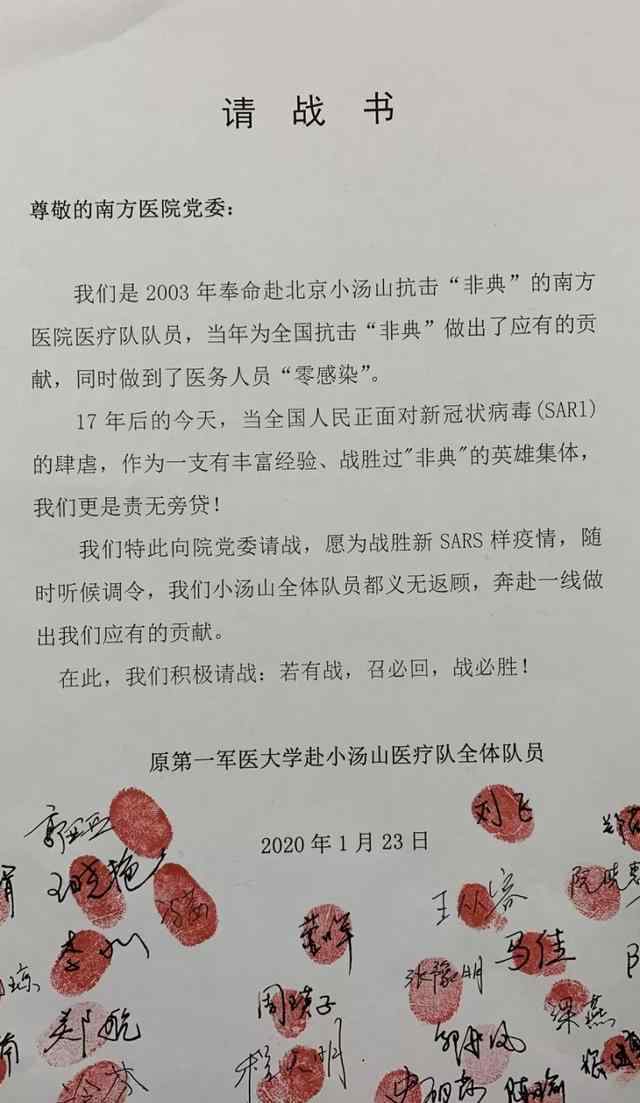 请战书
尊敬的南方医院党委：
我们是2003年奉命赴北京小汤山抗击“非典”的南方
医院医疗队队员，当年为全国抗击“非典”做出了应有的贡
献，同时做到了医务人员“零感染”。
17年后的今天，当全国人民正面对新冠状病毒(SARI)
的肆虐，作为一支有丰富经验、战胜过"非典"的英雄集体，
我们更是责无旁贷！
我们特此向院党委请战，愿为战胜新SARS样疫情，随
时听候调令，我们小汤山全体队员都义无返顾，奔赴一线做
出我们应有的贡献。
在此，我们积极请战：若有战，召必回，战必胜！
原第一军医大学赴小汤山医疗队全体队员
2020年1月23日
刘飞
王从容
马佳
张豫明
梁燕
周瑱子
郑航